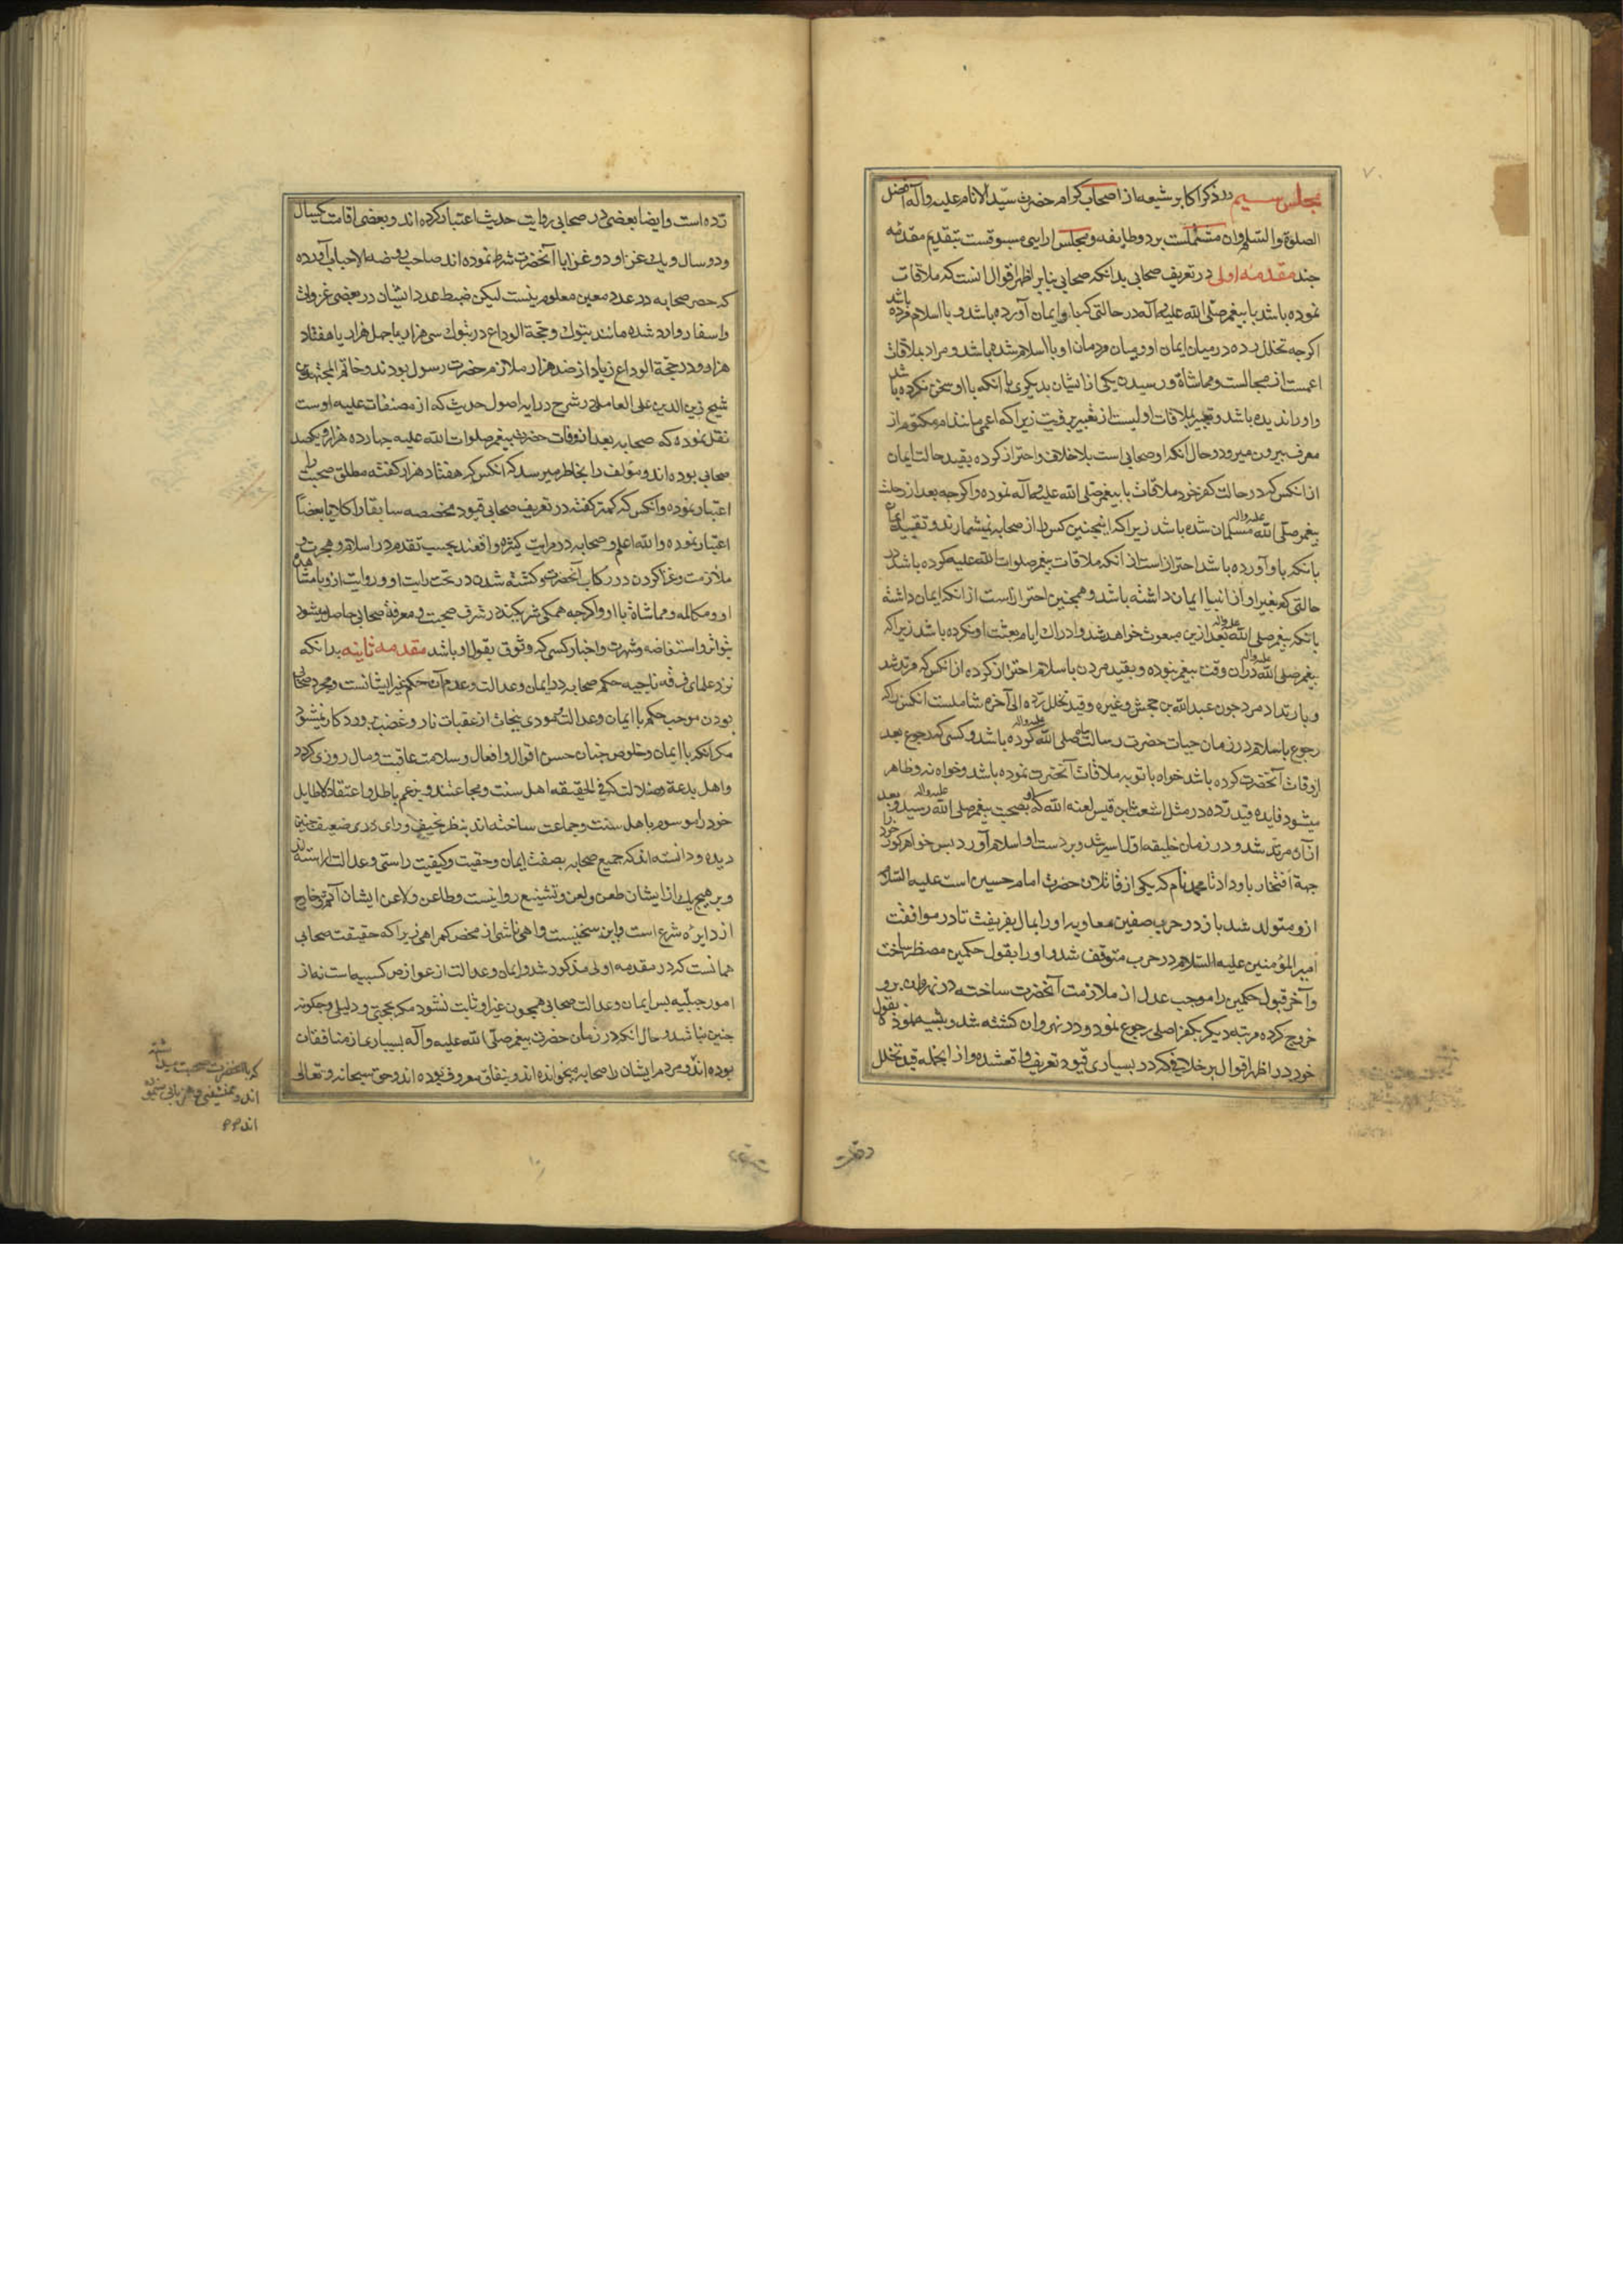 مجلس سیم در ذکر اکابر شیعه از اصحاب کرام حضرت سیّد الانام علیه وآله افضل
الصلوة والسّلم وان مشتملست بر دو طایفه و مجلس ارایی مسبوقست بتقدیم مقدمه
جند مقدمه اولی در تعریف صحابی بدانکه صحابی بنابر اظهر اقوال انست که ملاقات
نموده باشد با بیغمبر صلّی الله علیه وآله در حالتی که باو ایمان آورده باشد و با اسلام مرده باشد
اکرجه تخلل رده در میان ایمان او ومیان مردمان او با اسلام شده باشد و مراد بملاقات
اعمست از مجالست ومماشاة ورسیدن یکی از ایشان بدیکری با انکه با او سخن نکرده باشد
واو را ندیده باشد وتعبیر بملاقات اولیست از تعبیر برؤیت زیرا که اعمی مانند ام مکتوم از
معرف بیرون میرود وحال آنکه او صحابی است بلا خلاف واحتراز کرده بقید حالت ایمان
از انکس که در حالت کفر خود ملاقات با بیغمبر صلّی الله علیه وآله نموده واکرجه بعد از رحلت
بیغمبر صلّی الله علیه واله مسلمان شده باشد زیرا که اینجنین کس را از صحابه نمیشمارند وتقیید ایمان
بانکه باو آورده باشد احتراز است از انکه ملاقات بیغمبر صلوات الله علیه کرده باشد در
حالتی که بغیر او از انبیا ایمان داشته باشد وهمجنین احتراز است از انکه ایمان داشته
بانکه بیغمبر صلی الله علیه واله بعد ازین مبعوث خواهد شد وادراک ایام بعثت او نکرده باشد زیرا که
بیغمبر صلی الله علیه واله دران وقت بیغمبر نبوده وبقید مردن با سلام احتراز کرده از انکس که مرتد شد
وبارتداد مرد جون عبدالله بن جحش وغیره وقید تخلل ردّه الی آخره شاملست انکس را که
رجوع باسلام در زمان حیات حضرت رسالت بناه صلی الله علیه واله کرده باشد وکسی که رجوع بعد
از وفات آنحضرت کرده باشد خواه با توبه ملاقات آنحضرت نموده باشد وخواه نه وظاهر
میشود فایده قید ردّه در مثل اشعث بن قیس لعنه الله که او بصحبت بیغمبر صلی الله علیه واله رسید و بعد
ازان مرتد شد و در زمان خلیفه اول اسیر شد وبر دست او اسلام آورد بس خواهر کور خود را
جهة افتخار باو داد تا محمد نام که یکی از قاتلان حضرت امام حسین است علیه السّلام
ازو متولد شد باز در حرب صفین معاویه او را بمال بفریفت تا در موافقت
امیر المؤمنین علیه السّلام در حرب متوقف شد واو را بقول حکمین مضطر ساخت
وآخر قبول حکمین را موجب عدل از ملازمت آنحضرت ساخته در نهروان برو
خروج کرده مرتبه دیکر بکفر اصلی رجوع نمود و در نهروان کشته شد وتنبیه نموده بقول
خود بر اظهر اقوال بر خلافی که در بسیاری قیود تعریف واقعشده واز انجمله قید تخلل
ردّه است وایضا بعضی در صحابی روایت حدیث اعتبار کرده اند وبعضی اقامت یکسال
ودو سال ویک غزا و دو غزا با آنحضرت شرط نموده اند صاحب روضه الاحباب آورده
که حصر صحابه در عدد معین معلوم نیست لیکن ضبط عدد ایشان در بعضی غزوات
واسفار وارد شده مانند تبوک وحجة الوداع در تبوک سی هزار یا جهل هزار یا هفتاد
هزار ودر حجة الوداع زیاد از صد هزار ملازم حضرت رسول بودند وخاتم المجتهدین
شیخ زین الدین علی العاملی در شرح درایه اصول حدیث که از مصنفات علیه اوست
نقل نموده که صحابه بعد از وفات حضرت بیغمبر صلوات الله علیه جهارده هزار ویکصد
صحابی بوده اند ومؤلف را بخاطر میرسد که انکس که هفتاد هزار کفته مطلق صحبت را
اعتبار نموده وانکس که کمتر کفته در تعریف صحابی قیود مخصصه سابقا را کلا یا بعضاً
اعتبار نموده والله اعلم و صحابه در مراتب کثیره واقعند بحسب تقدم در اسلام وهجرت و
ملازمت وغزا کردن در رکاب آنحضرت وکشته شدن در تحت رایت او وروایت ازو یا مشاهده
او ومکالمه ومماشاة با او واکرجه همکی شریکند در شرف صحبت ومعرفة صحابی حاصل میشود
بتواتر واستفاضه وشهرت واخبار کسی که وثوق بقول او باشد مقدمه ثانیه بدانکه
نزد علمای فرقه ناجیه حکم صحابه در ایمان وعدالت وعدم آن حکم غیر ایشانست ومجرد صحابی
بودن موجب حکم با ایمان وعدالت ومودی بنجات از عقبات نار وغضب برورد کار نمیشود
مکر آنکه با ایمان وخلوص جنان حسن اقوال وافعال وسلامت عاقبت ومال روزی کردد
واهل بدعة وضلالت که فی الحقیقه اهل سنت ومجاعتند وبزعم باطل واعتقاد لا طایل
خود را موسوم با هل سنت وجماعت ساخته اند بنظر نحیف ورای ردی ضعیف جنین
دیده ودانسته اند که جمیع صحابه بصفت ایمان وحقیت وکیفیت راستی وعدالت آراسته اند
وبر هیج یک از ایشان طعن ولعن وتشنیع روا نیست وطاعن ولاعن ایشان آثم وخارج
از دایره شرع است واین سخنیست واهی ناشی از محض کمراهی زیرا که حقیقت صحابی
همانست که در مقدمه اولی مذکور شد وایمان وعدالت از عوارض کسبیه است نه از
امور جبلّیه بس ایمان وعدالت صحابی همجون غیر او ثابت نشود مکر بحجتی ودلیلی وجکونه
جنین نباشد وحال انکه در زمان حضرت بیغمبر صلّی الله علیه وآله بسیاری از منافقان
بوده اند ومردم ایشان را صحابه میخوانده اند وبنفاق معروف نبوده اند وحق سبحانه وتعالی
که با آنحضرت صحبت میداشته
اند و همنشینی و هم زبانی می نموده
اند